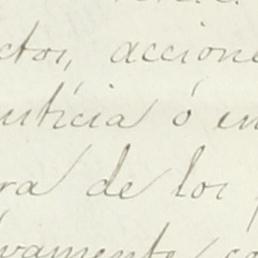 ctos, accione
usticia ó en
ra de los
vamente, co